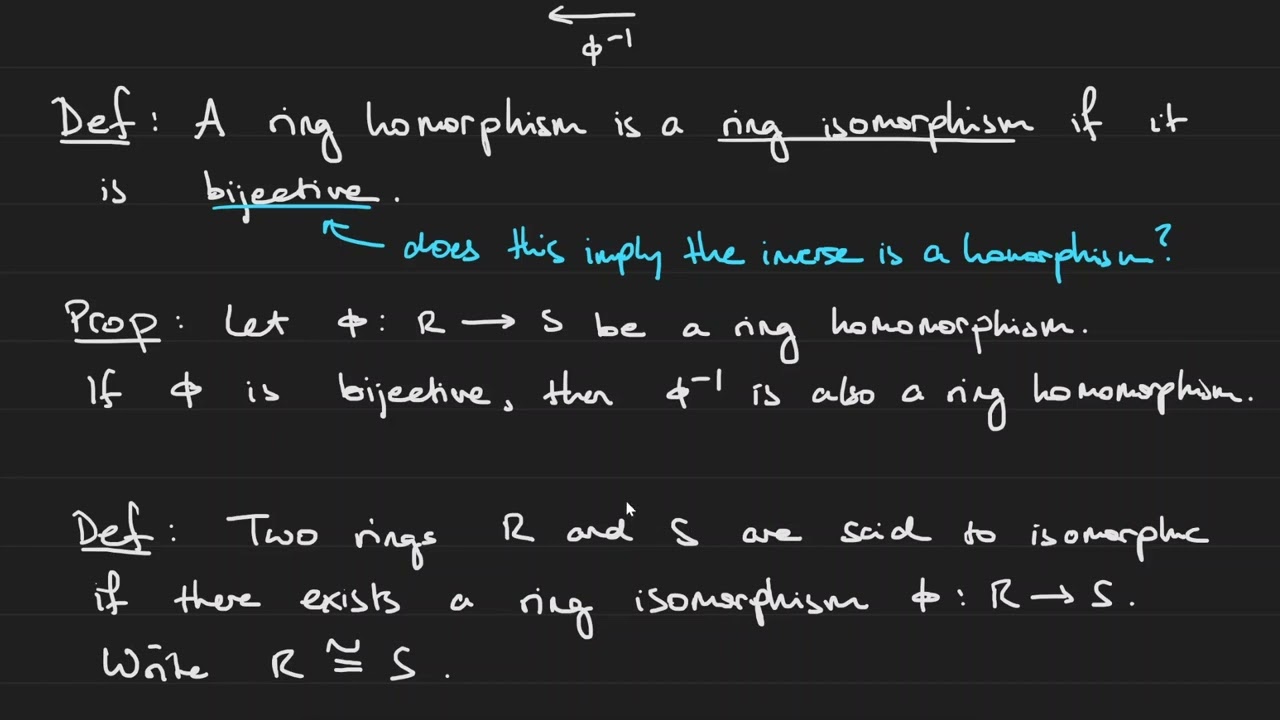 ϕ⁻¹
Def: A ring homorphism is a ring isomorphism if it
is bijective.
does this imply the inverse is a homorphism?
Prop: Let ϕ: R → S be a ring homomorphism.
If ϕ is bijective, then ϕ⁻¹ is also a ring homomorphism.
Def: Two rings R and S are said to isomorphic
if there exists a ring isomorphism ϕ: R → S.
Write R ≅ S.